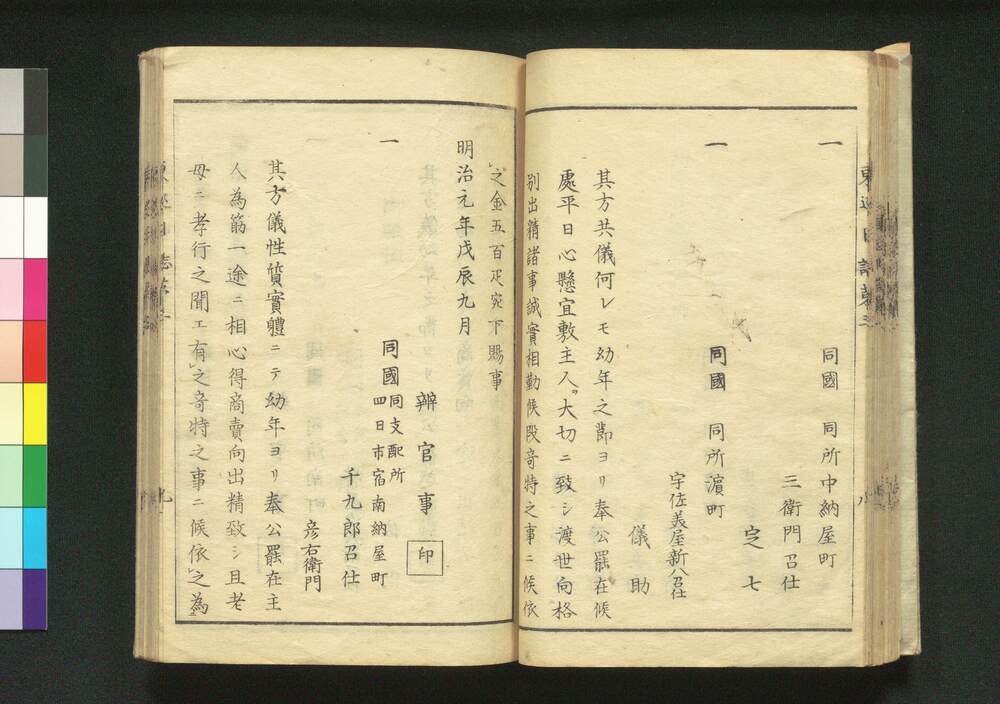 一
同國 同所中納屋町
三衛門召仕
定七
一
同國 同所濵町
宇佐美屋新八召仕
儀助
其方共儀何レモ幼年之節ヨリ奉公罷在候
處平日心懸宜敷主人ヲ大切ニ致シ渡世向格
別出精諸事誠實相勤候段奇特之事ニ候依
之金五百疋宛下賜事
明治元年戊辰九月
辨官事 印
一
同國 同支配所
四日市宿南納屋町
千九郎召仕
彦右衛門
其方儀性質實軆ニテ幼年ヨリ奉公罷在主
人為筋一途ニ相心得商賣向出精致シ且老
母ニ孝行之聞エ有之奇特之事ニ候依之為